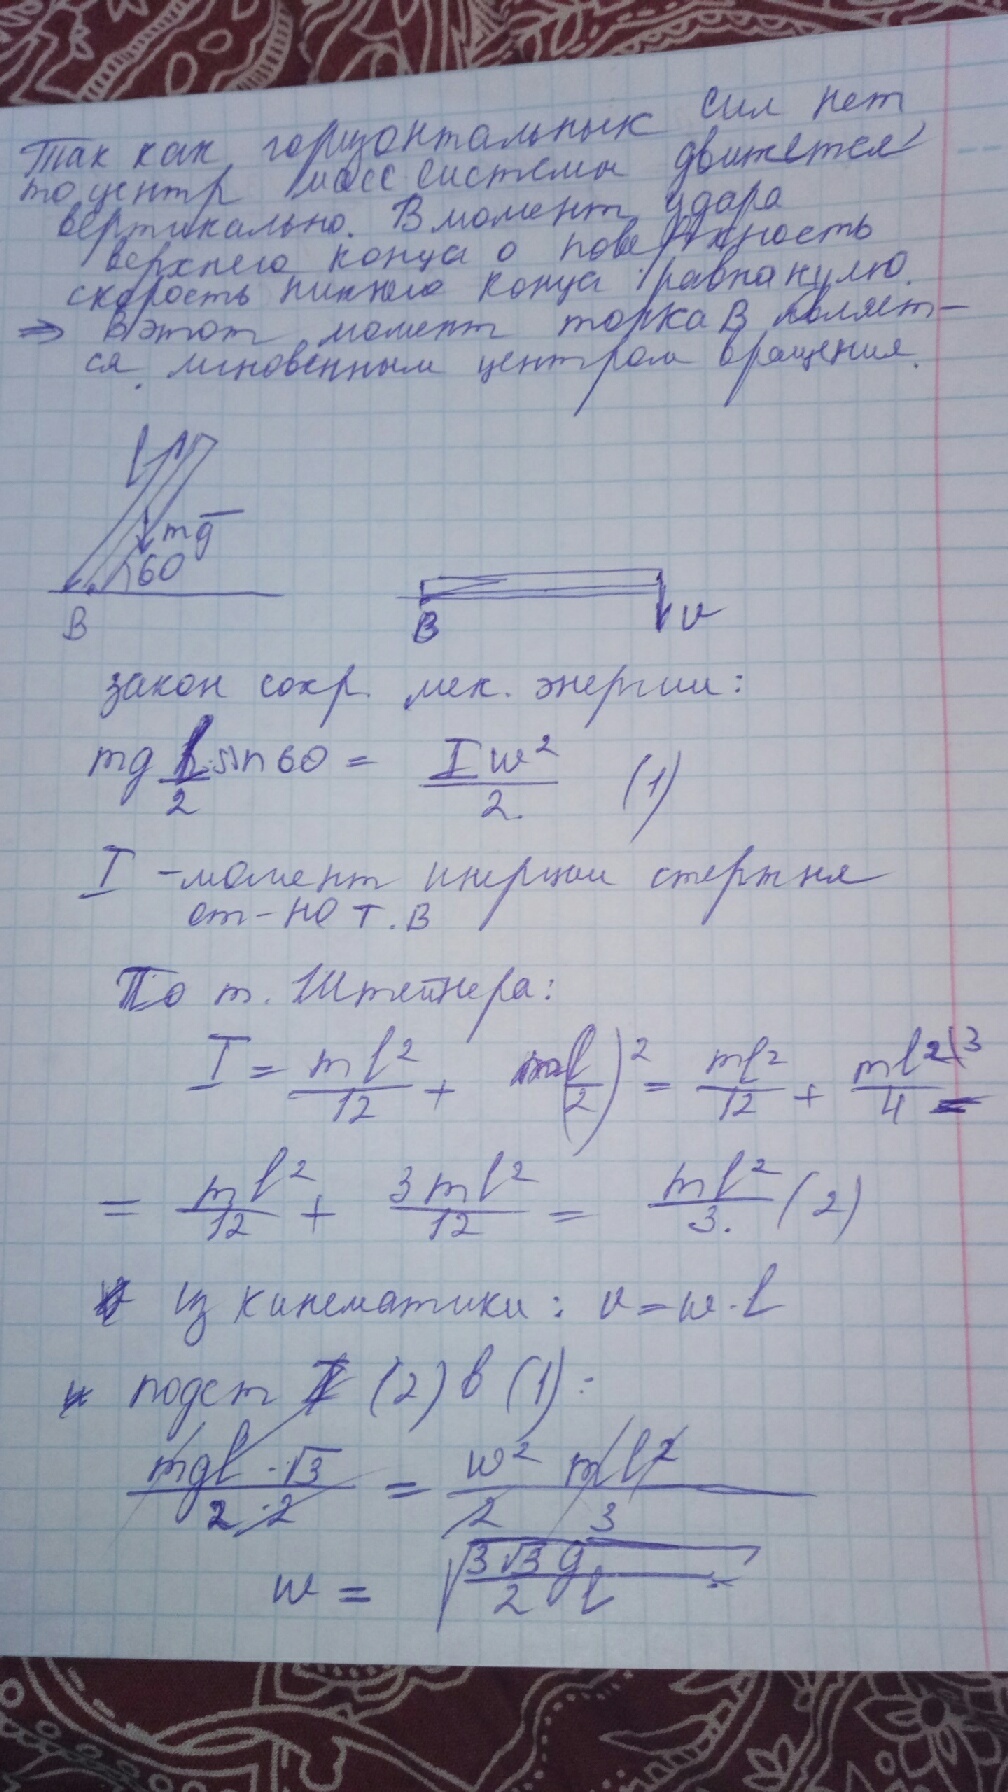 Так как горизонтальных сил нет
то центр масс системы движется
вертикально. В момент удара
верхнего конца о поверхность
скорость нижнего конца равна нулю.
⇒ В этот момент точка В являет-
ся мгновенным центром вращения.
l
mg
60
B
B
v
закон сохр. мех. энергии:
mg l/2 · sin 60 = Iw²/2. (1)
I - момент инерции стержня
от-но т. В
По т. Штейнера:
I = ml²/12 + m(l/2)² = ml²/12 + ml²/4 \3 =
= ml²/12 + 3ml²/12 = ml²/3. (2)
из кинематики: v = w · l
подст (2) в (1):
mgl · √3 / 2 · 2 = w² ml² / 2 3
w = √(3√3 g / 2 l)